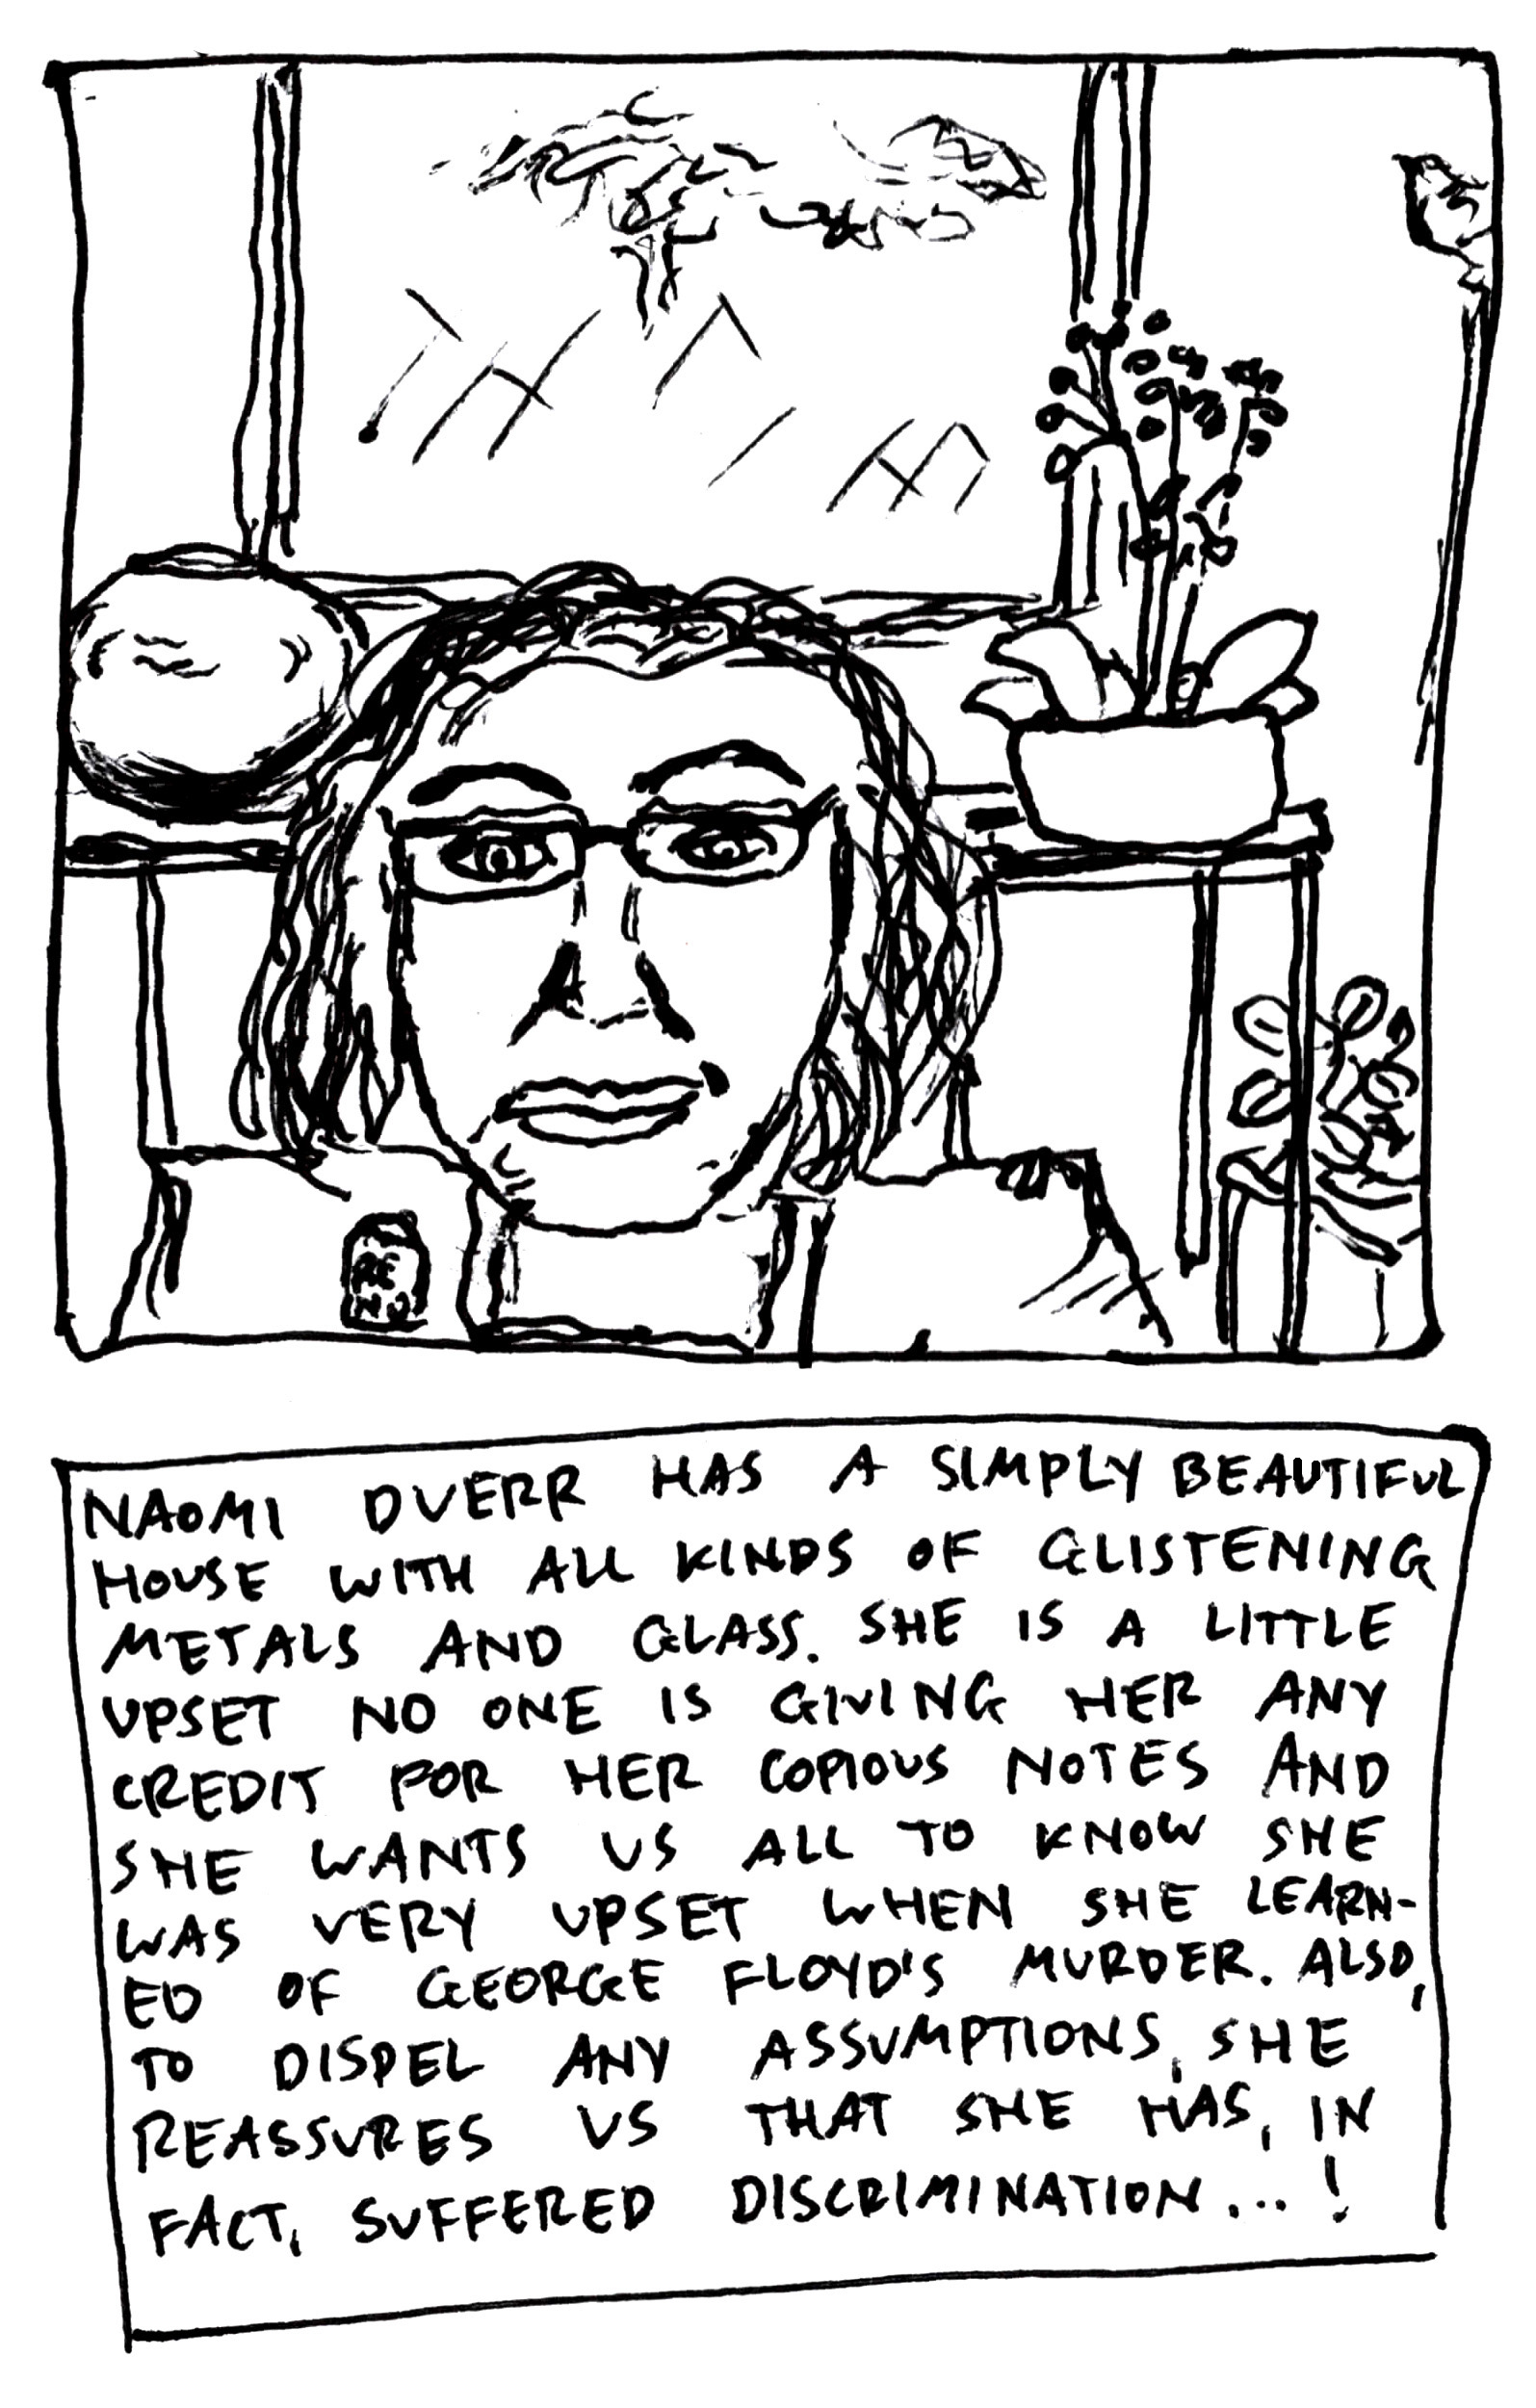 RE
NO
NAOMI DVERR HAS A SIMPLY BEAUTIFUL
HOUSE WITH ALL KINDS OF GLISTENING
METALS AND GLASS. SHE IS A LITTLE
UPSET NO ONE IS GIVING HER ANY
CREDIT FOR HER COPIOUS NOTES AND
SHE WANTS US ALL TO KNOW SHE
WAS VERY UPSET WHEN SHE LEARN-
ED OF GEORGE FLOYD'S MURDER. ALSO,
TO DISPEL ANY ASSUMPTIONS, SHE
REASSURES US THAT SHE HAS, IN
FACT, SUFFERED DISCRIMINATION...!